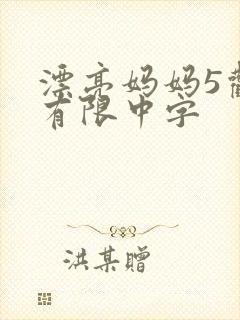 漂亮妈妈5
有限中字
洪某赠